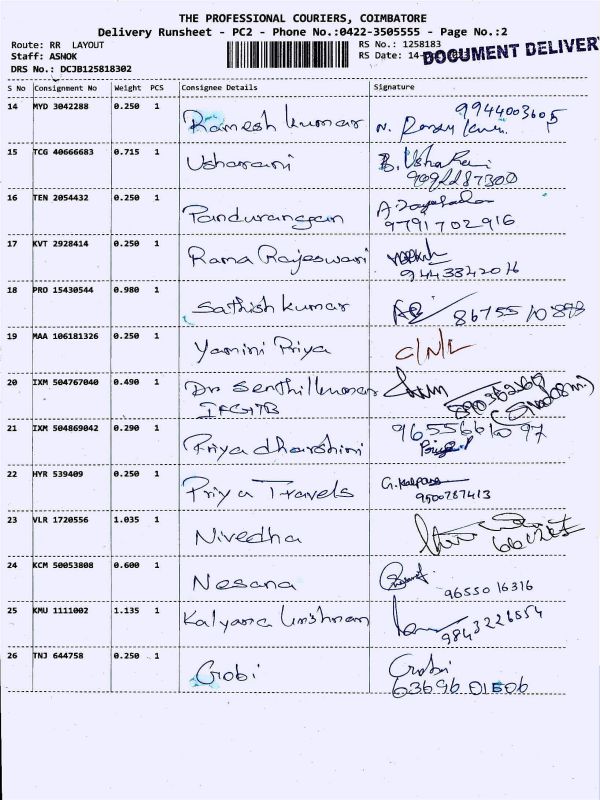 THE PROFESSIONAL COURIERS, COIMBATORE
Delivery Runsheet - PC2 - Phone No.:0422-3505555 - Page No.:2
Route: RR LAYOUT
Staff: ASNOK
DRS No.: DCJB125818302
RS No.: 1258183
RS Date: 14-
DOCUMENT DELIVERY
S No Consignment No Weight PCS Consignee Details Signature
14 MYD 3042288 0.250 1 Ramesh kumar 9944003605
15 TCG 40666683 0.715 1 Usharani B. Usha Rani
16 TEN 2054432 0.250 1 Pandurangan
9791702916
17 KVT 2928414 0.250 1 Rama Rajeswari
9443842016
18 PRO 15430544 0.980 1 Sathish kumar 8675510898
19 MAA 106181326 0.250 1 Yamini Priya C/N/L
20 IXM 504767040 0.490 1 Dr Senthilkumar
IFGTB
21 IXM 504869042 0.290 1 Priya dharshini
22 HYR 539409 0.250 1 Priya Travels G. Kalpana
9500787413
23 VLR 1720556 1.035 1 Nivedha
24 KCM 50053808 0.600 1 Nesana
9655016316
25 KMU 1111002 1.135 1 Kalyana krishnan
9843226554
26 TNJ 644758 0.250 1 Gobi Gobi
63696 01506